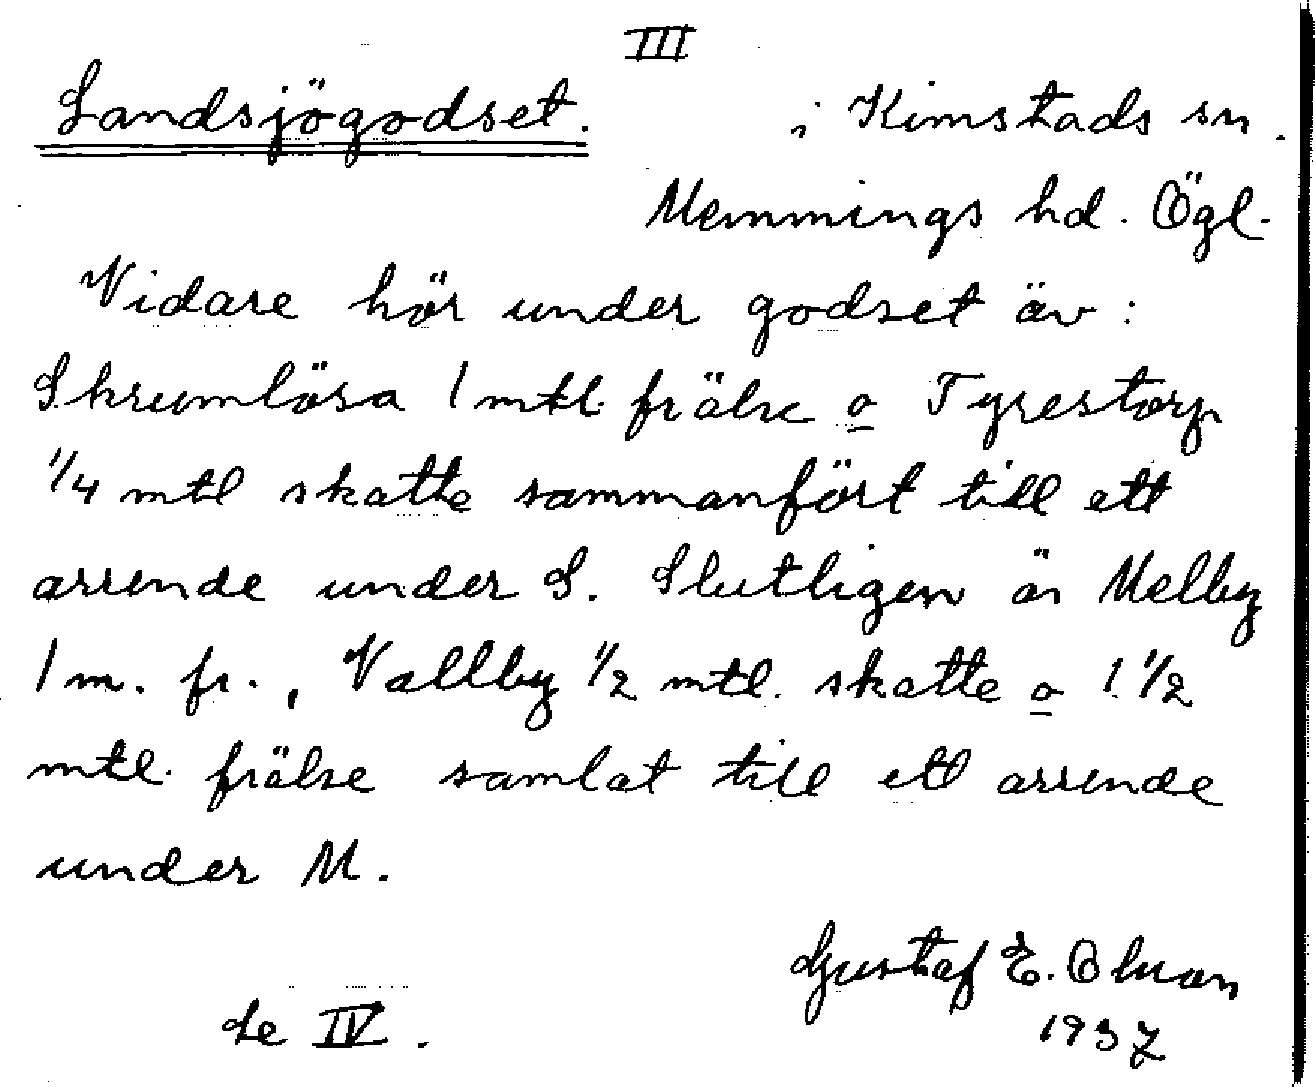 III
Landsjögodset. i Kimstads sn.
Memmings hd. Ögl.
Vidare hör under godset äv:
Skrumlösa 1 mtl. frälse o Tyrestorp
1/4 mtl skatte sammanfört till ett
arrende under S. Slutligen är Melby
1 m. fr., Vallby 1/2 mtl. skatte o 1 1/2
mtl. frälse samlat till ett arrende
under M.
Gustaf E. Olsson
1937
Se IV.